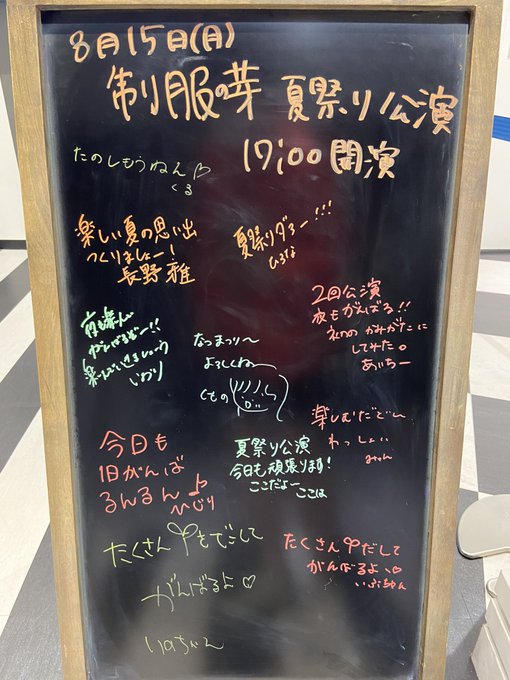 8月15日(月)
制服の芽 夏祭り公演
17:00 開演
たのしもうねん♡
くる
楽しい夏の思い出
つくりましょー!
長野雅
夏祭りダァー!!!
ひろな
2回公演
夜もがんばる!!
かみがたに
してみた。
あいちー
がんばるぞー!!
いおり
なつまつり〜
よろしくねー
楽しむだどい
わっしょい
みゃん
今日も
1日がんば
るんるん♪
ひじり
夏祭り公演
今日も頑張ります!
ここだよー
ここは
たくさん
がんばるよ♡
たくさん だして
がんばるよ
いぶちゃん